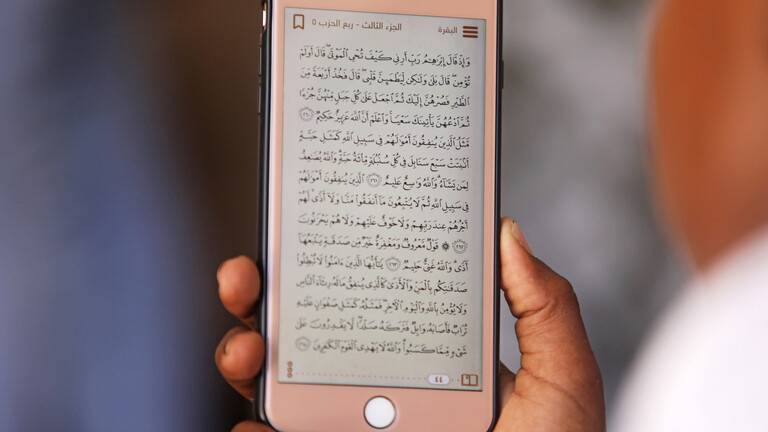 البقرة
الجزء الثالث - ربع الحزب ٥
وَإِذْ قَالَ إِبْرَٰهِـۧمُ رَبِّ أَرِنِى كَيْفَ تُحْىِ ٱلْمَوْتَىٰ ۖ قَالَ أَوَلَمْ
تُؤْمِن ۖ قَالَ بَلَىٰ وَلَـٰكِن لِّيَطْمَئِنَّ قَلْبِى ۖ قَالَ فَخُذْ أَرْبَعَةً مِّنَ
ٱلطَّيْرِ فَصُرْهُنَّ إِلَيْكَ ثُمَّ ٱجْعَلْ عَلَىٰ كُلِّ جَبَلٍ مِّنْهُنَّ جُزْءًا
ثُمَّ ٱدْعُهُنَّ يَأْتِينَكَ سَعْيًا ۚ وَٱعْلَمْ أَنَّ ٱللَّهَ عَزِيزٌ حَكِيمٌ ٢٦٠
مَّثَلُ ٱلَّذِينَ يُنفِقُونَ أَمْوَٰلَهُمْ فِى سَبِيلِ ٱللَّهِ كَمَثَلِ حَبَّةٍ
أَنۢبَتَتْ سَبْعَ سَنَابِلَ فِى كُلِّ سُنۢبُلَةٍ مِّا۟ئَةُ حَبَّةٍ ۗ وَٱللَّهُ يُضَـٰعِفُ
لِمَن يَشَآءُ ۗ وَٱللَّهُ وَٰسِعٌ عَلِيمٌ ٢٦١ ٱلَّذِينَ يُنفِقُونَ أَمْوَٰلَهُمْ
فِى سَبِيلِ ٱللَّهِ ثُمَّ لَا يُتْبِعُونَ مَآ أَنفَقُوا۟ مَنًّا وَلَآ أَذًى ۙ لَّهُمْ
أَجْرُهُمْ عِندَ رَبِّهِمْ وَلَا خَوْفٌ عَلَيْهِمْ وَلَا هُمْ يَحْزَنُونَ
٢٦٢ ۞ قَوْلٌ مَّعْرُوفٌ وَمَغْفِرَةٌ خَيْرٌ مِّن صَدَقَةٍ يَتْبَعُهَآ
أَذًى ۗ وَٱللَّهُ غَنِىٌّ حَلِيمٌ ٢٦٣ يَـٰٓأَيُّهَا ٱلَّذِينَ ءَامَنُوا۟ لَا تُبْطِلُوا۟
صَدَقَـٰتِكُم بِٱلْمَنِّ وَٱلْأَذَىٰ كَٱلَّذِى يُنفِقُ مَالَهُۥ رِئَآءَ ٱلنَّاسِ
وَلَا يُؤْمِنُ بِٱللَّهِ وَٱلْيَوْمِ ٱلْـَٔاخِرِ ۖ فَمَثَلُهُۥ كَمَثَلِ صَفْوَانٍ عَلَيْهِ
تُرَابٌ فَأَصَابَهُۥ وَابِلٌ فَتَرَكَهُۥ صَلْدًا ۖ لَّا يَقْدِرُونَ عَلَىٰ
شَىْءٍ مِّمَّا كَسَبُوا۟ ۗ وَٱللَّهُ لَا يَهْدِى ٱلْقَوْمَ ٱلْكَـٰفِرِينَ ٢٦٤
٤٤